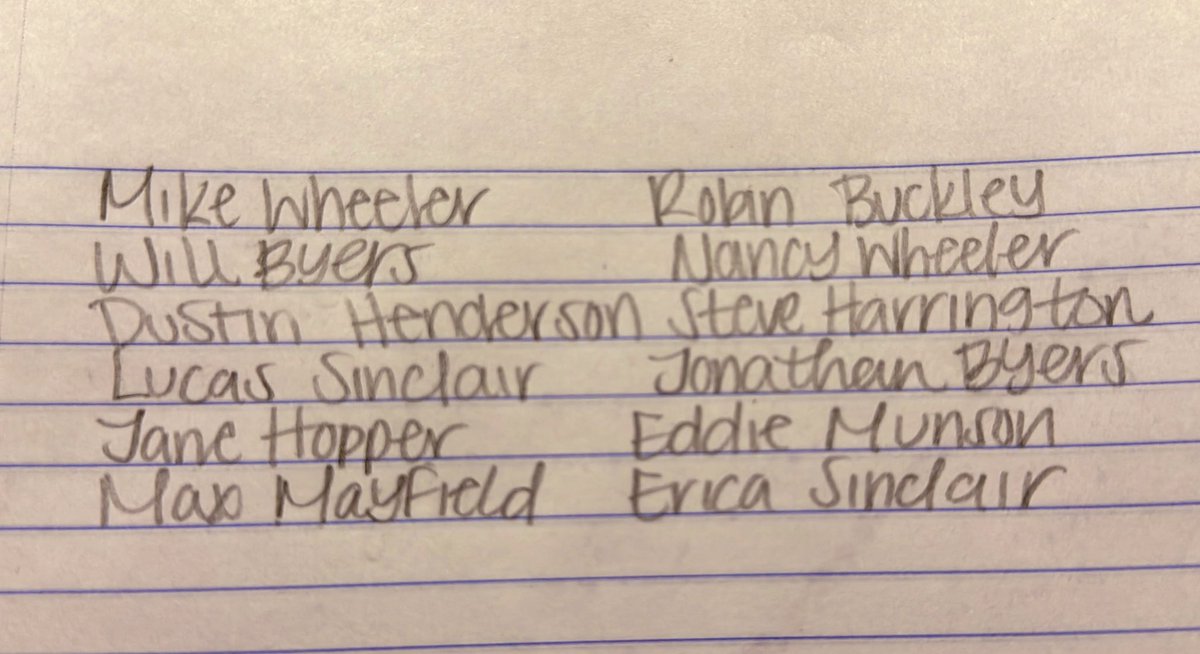 Mike Wheeler Robin Buckley
Will Byers Nancy Wheeler
Dustin Henderson Steve Harrington
Lucas Sinclair Jonathan Byers
Jane Hopper Eddie Munson
Max Mayfield Erica Sinclair